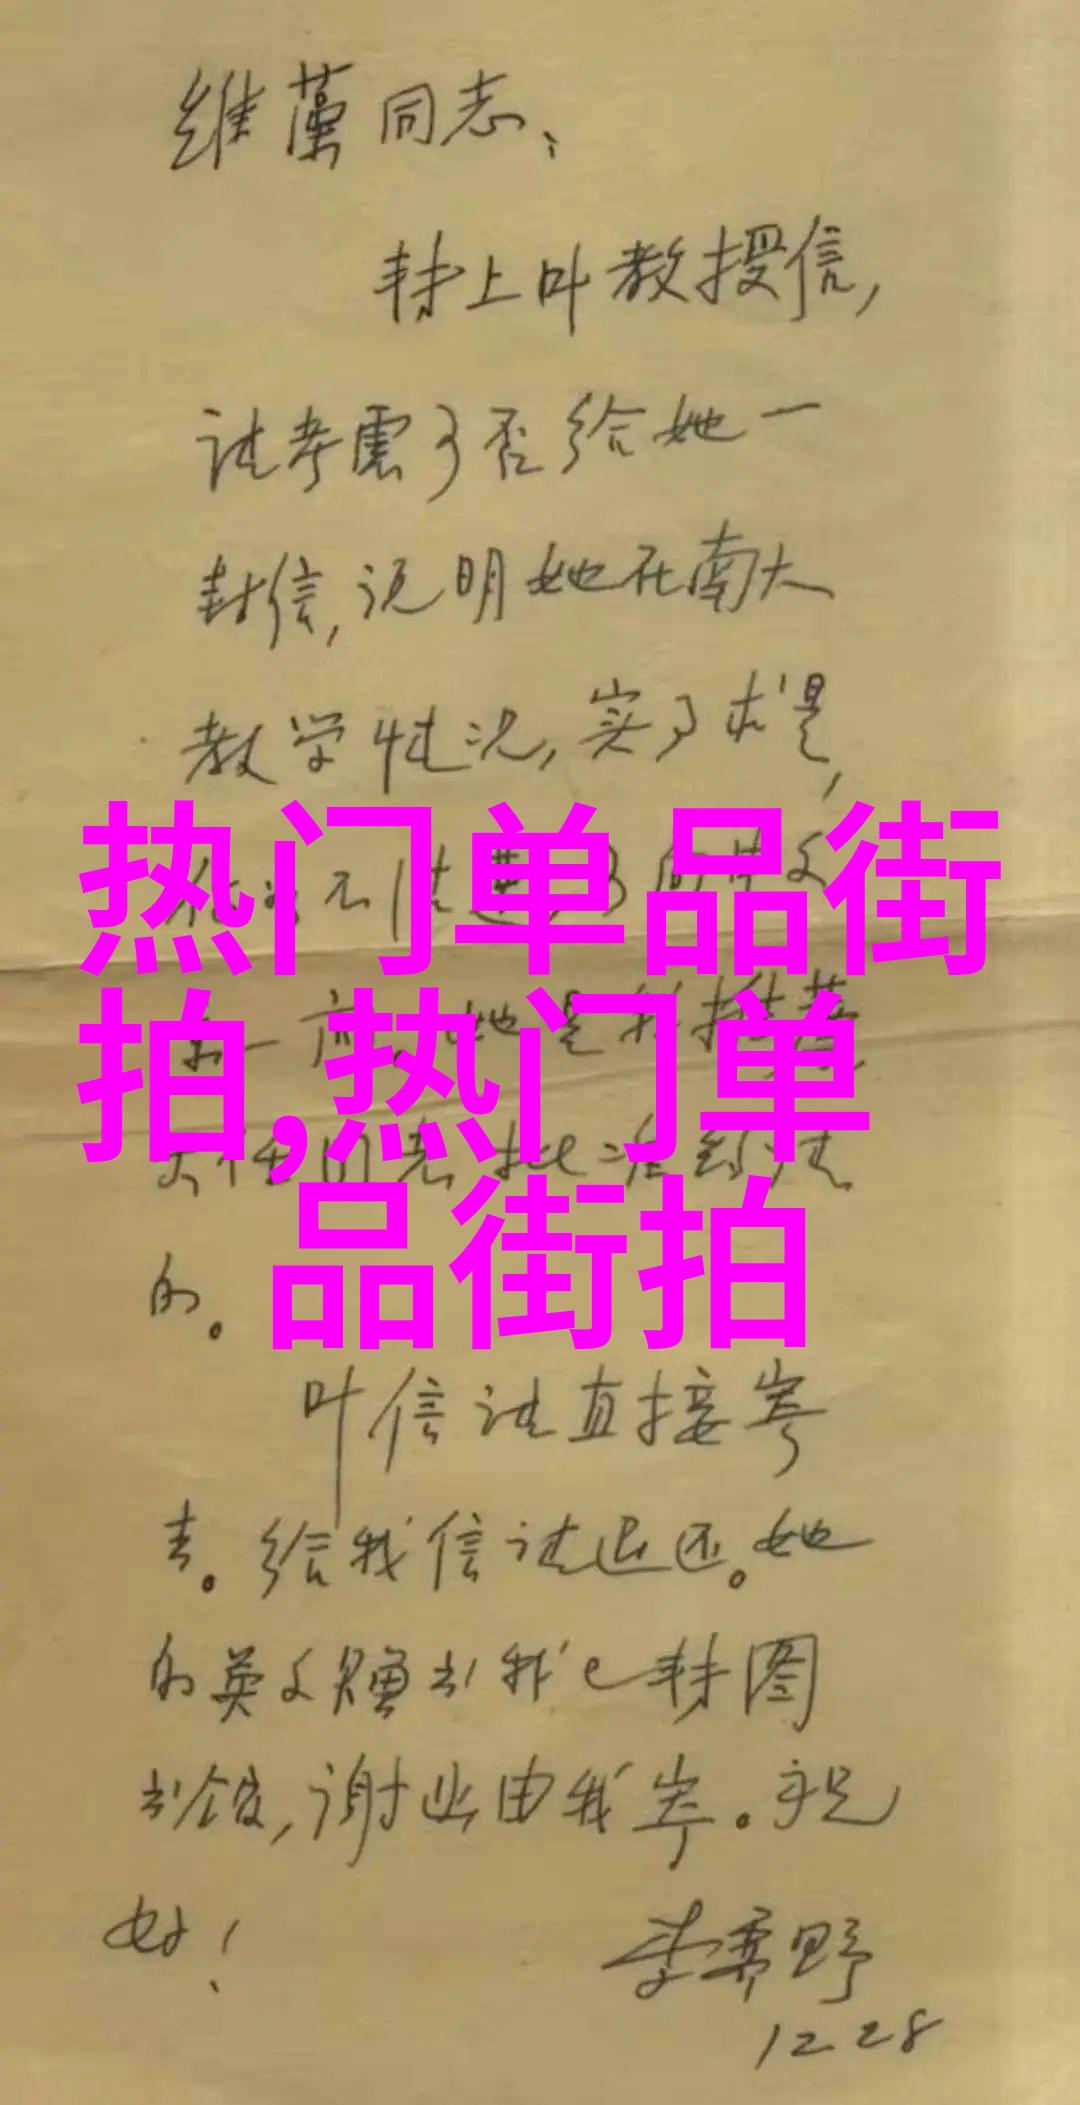 维藻同志:
转上叶教授信,
请考虑可否给她一
封信,说明她在南大
教学情况,实事求是,
热门单品街
拍,热门单
品街拍
的。
叶信请直接寄
去。给我信请退还。她
的英文赠书我已转图
书馆,谢函由我寄。祝
好!
李霁野
12 28